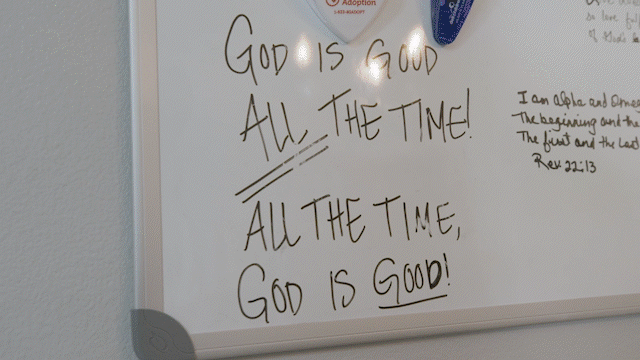 Adoption
GOD IS GOOD
ALL THE TIME!
ALL THE TIME,
GOD IS GOOD!
so love
I am alpha and Omega
The beginning and the
The first and the Last
Rev. 22:13